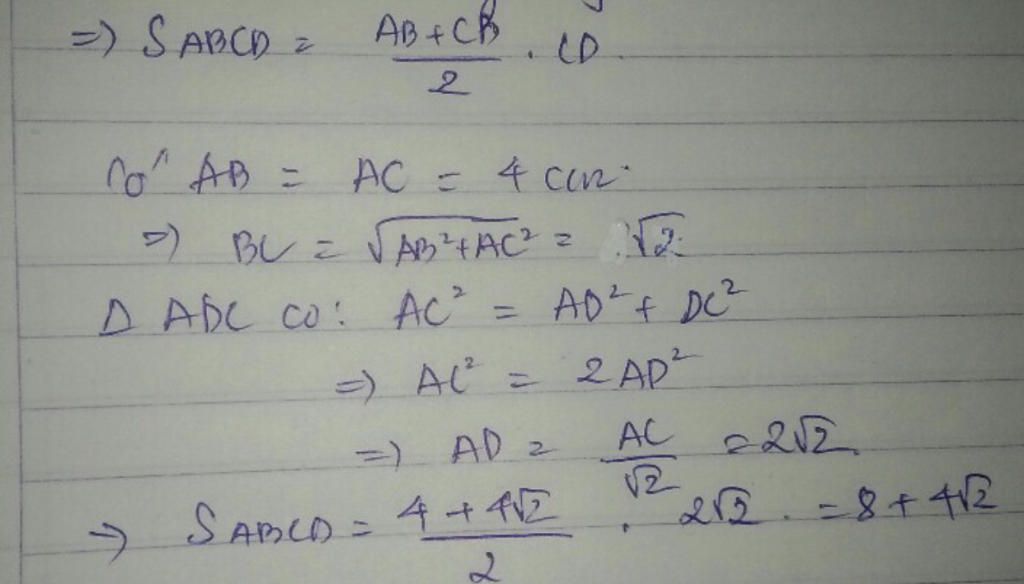 => S ABCD = AB + CB / 2 . CD
Có AB = AC = 4 cm.
=> BC = √AB² + AC² = √2.
Δ ADC có: AC² = AD² + DC²
=> AC² = 2 AD²
=> AD = AC / √2 = 2√2
=> S ABCD = 4 + 4√2 / 2 . 2√2 . = 8 + 4√2